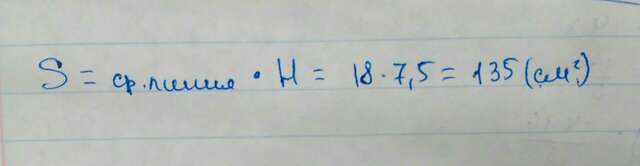 S = ср.линия • H = 18 · 7,5 = 135 (см²)